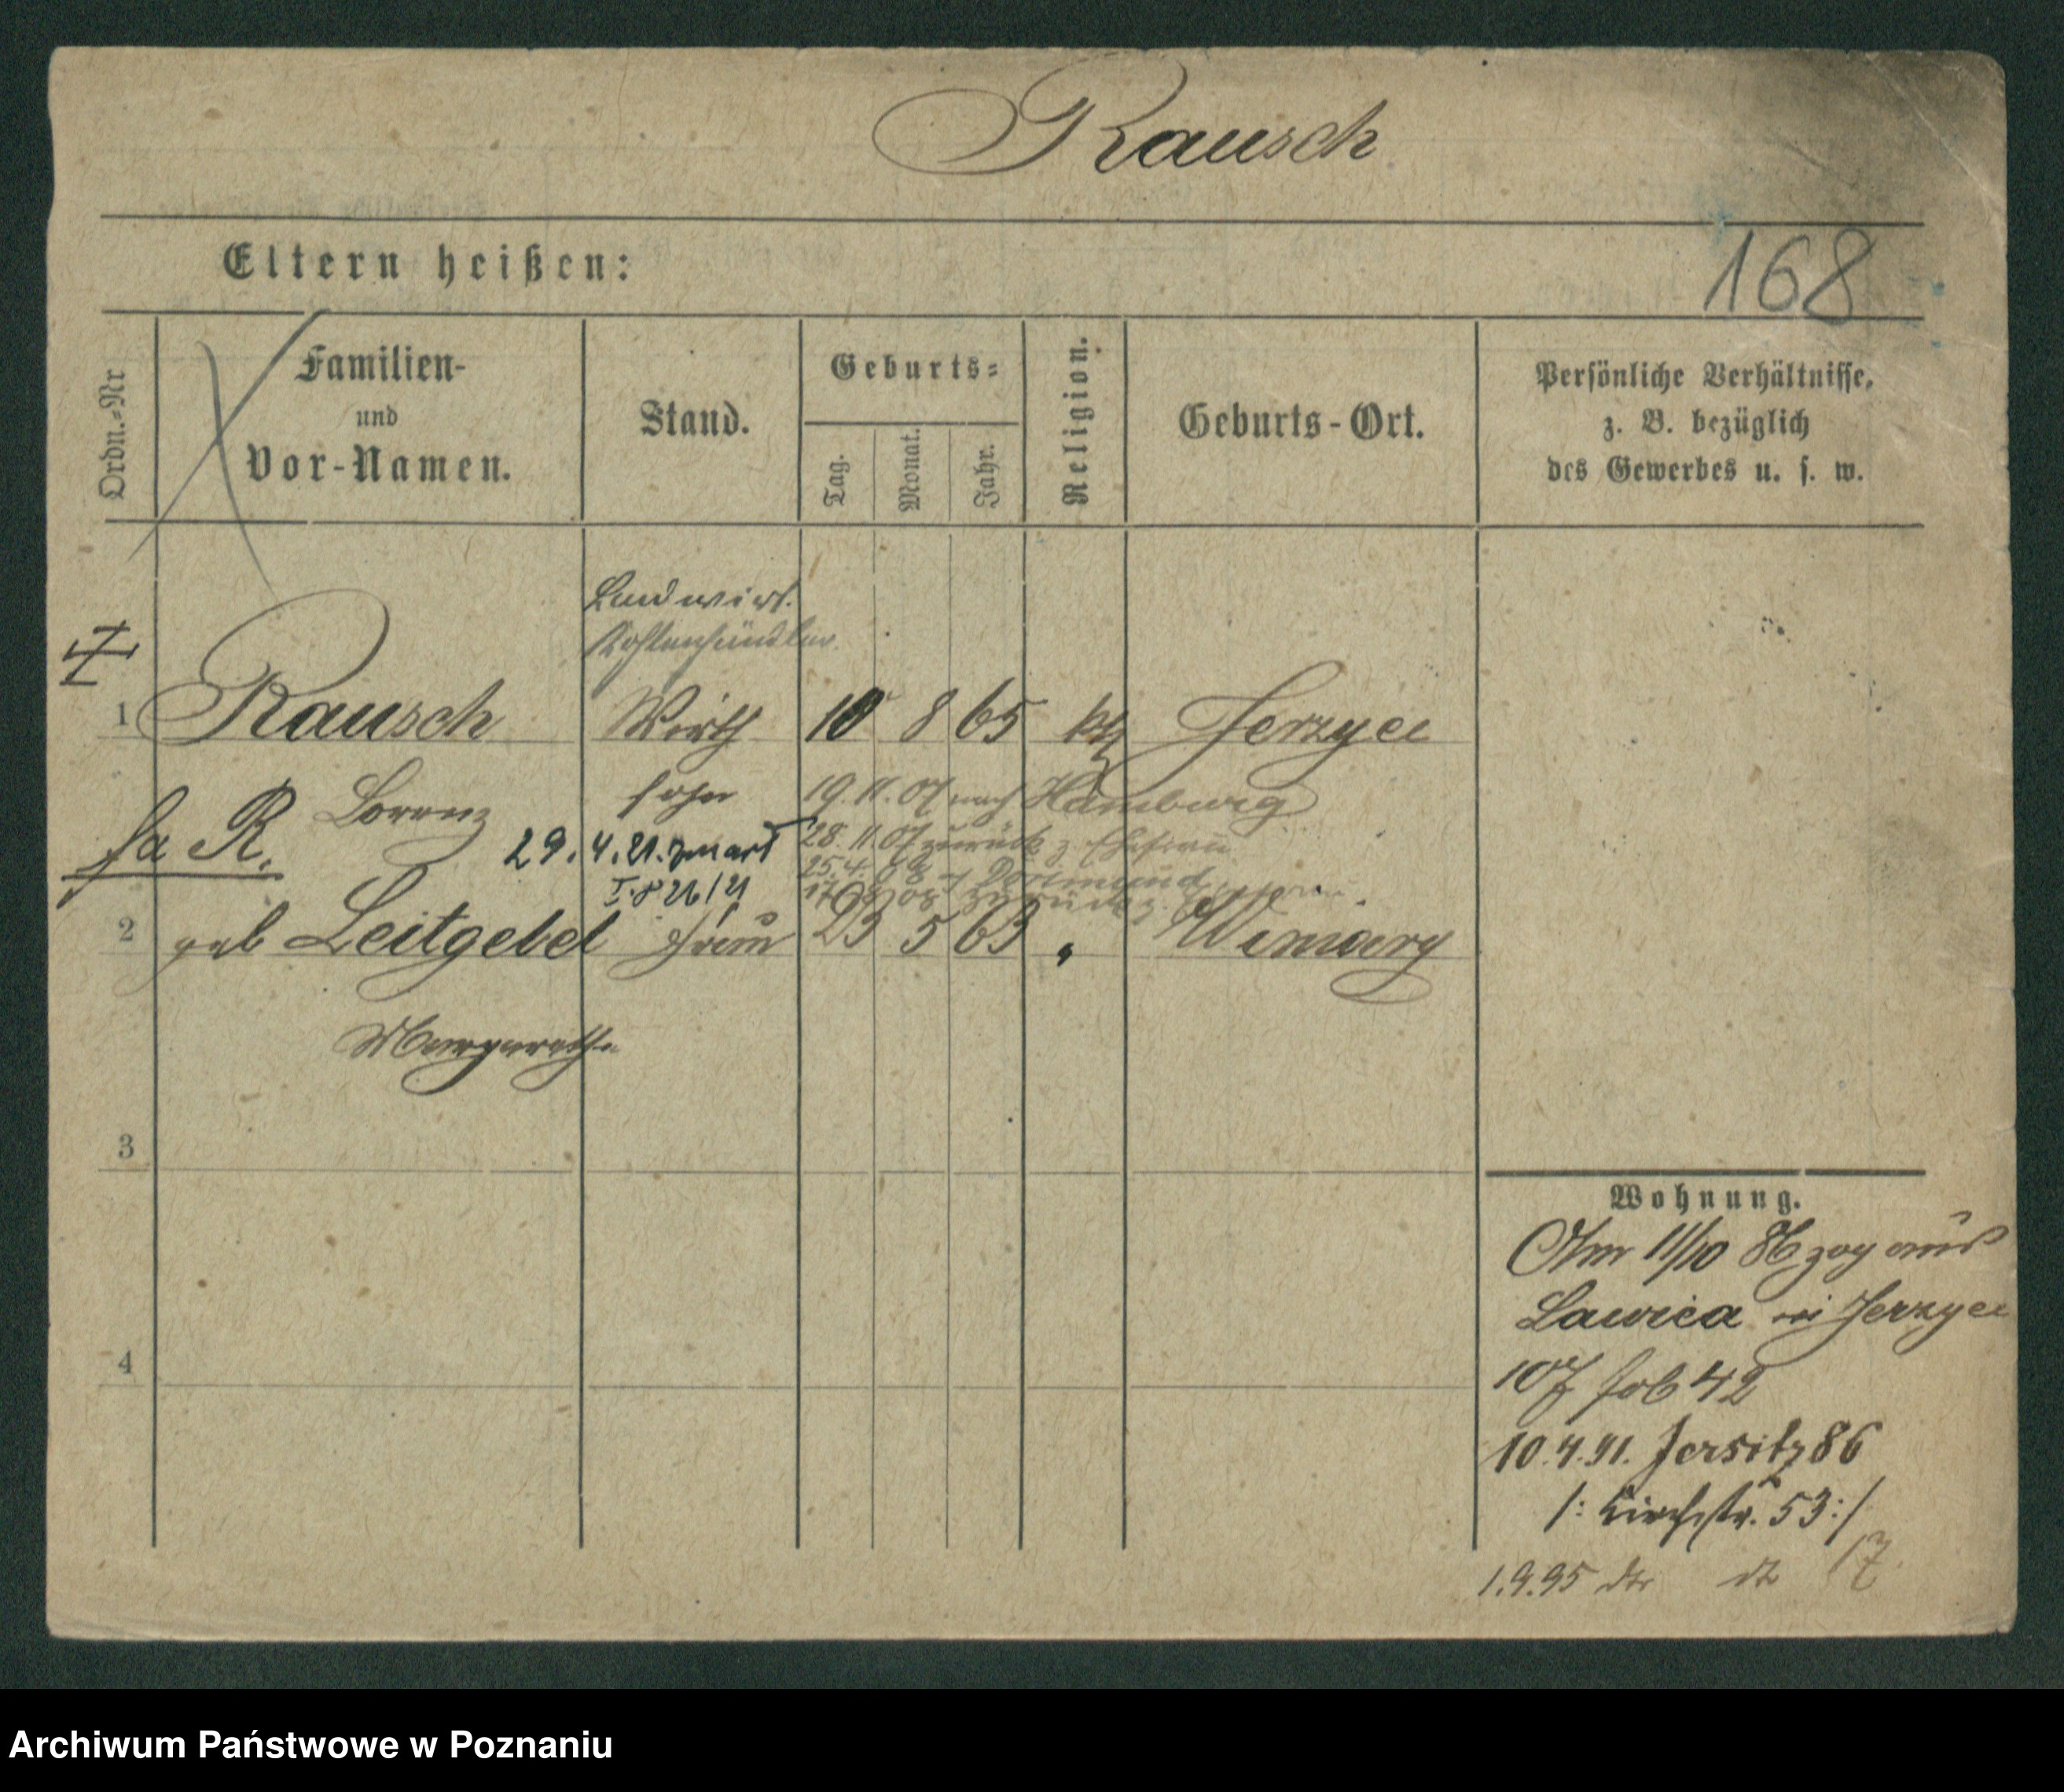 Rausch
Eltern heißen:
168
Ordn.-Nr
Familien-
und
Vor-Namen.
Stand.
Geburts-
Tag.
Monat.
Jahr.
Religion.
Geburts-Ort.
Persönliche Verhältnisse,
z. B. bezüglich
des Gewerbes u. s. w.
Landwirt.
Kohlenhändler
1 Rausch Wirth 10 8 65 kth Jerzyce
Lorenz sohn 19.11.07 nach Hamburg
fa R. 29.4.21. zmarł 28.11.07 zurück z. Ehefrau
25.4.08 Dortmund
21/21 zurück z.
2 geb Leitgebel Frau 23 5 63 " Winiary
Margarethe
3
Wohnung.
Am 11/10 86 zog aus
Lawica in Jerzyce
107 42
4
10.4.91. Jersitz 86
/: Kirchstr. 53 :/
1.9.95 dto dt 17
Archiwum Państwowe w Poznaniu